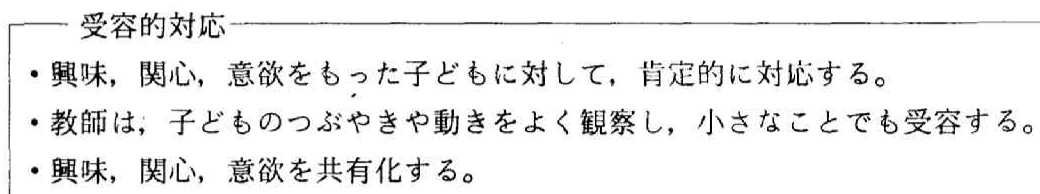 受容的対応
・興味，関心，意欲をもった子どもに対して，肯定的に対応する。
・教師は，子どものつぶやきや動きをよく観察し，小さなことでも受容する。
・興味，関心，意欲を共有化する。